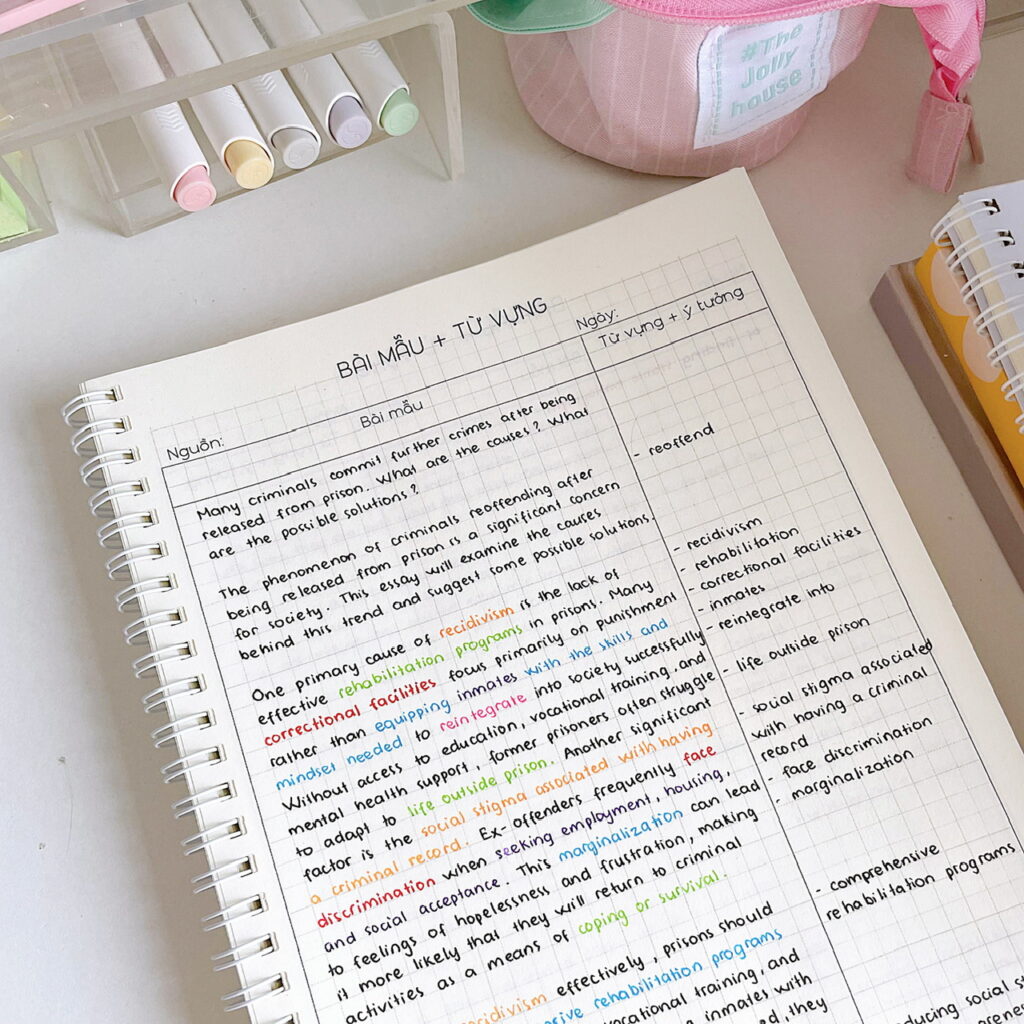 #The
Jolly
house
BÀI MẪU + TỪ VỰNG
Nguồn:
Ngày:
Bài mẫu
Từ vựng + ý tưởng
Many criminals commit further crimes after being
released from prison. What are the causes? What
are the possible solutions?
The phenomenon of criminals reoffending after
being released from prison is a significant concern
for society. This essay will examine the causes
behind this trend and suggest some possible solutions.
One primary cause of recidivism is the lack of
effective rehabilitation programs in prisons. Many
correctional facilities focus primarily on punishment
rather than equipping inmates with the skills and
mindset needed to reintegrate into society successfully
Without access to education, vocational training, and
mental health support, former prisoners often struggle
to adapt to life outside prison. Another significant
factor is the social stigma associated with having
a criminal record. Ex-offenders frequently face
discrimination when seeking employment, housing,
and social acceptance. This marginalization can lead
to feelings of hopelessness and frustration, making
it more likely that they will return to criminal
activities as a means of coping or survival.
effectively, prisons should
rehabilitation programs
training, and
inmates with
they
- reoffend
- recidivism
- rehabilitation
- correctional facilities
- inmates
- reintegrate into
- life outside prison
- social stigma associated
with having a criminal
record
- face discrimination
- marginalization
- comprehensive
rehabilitation programs
social